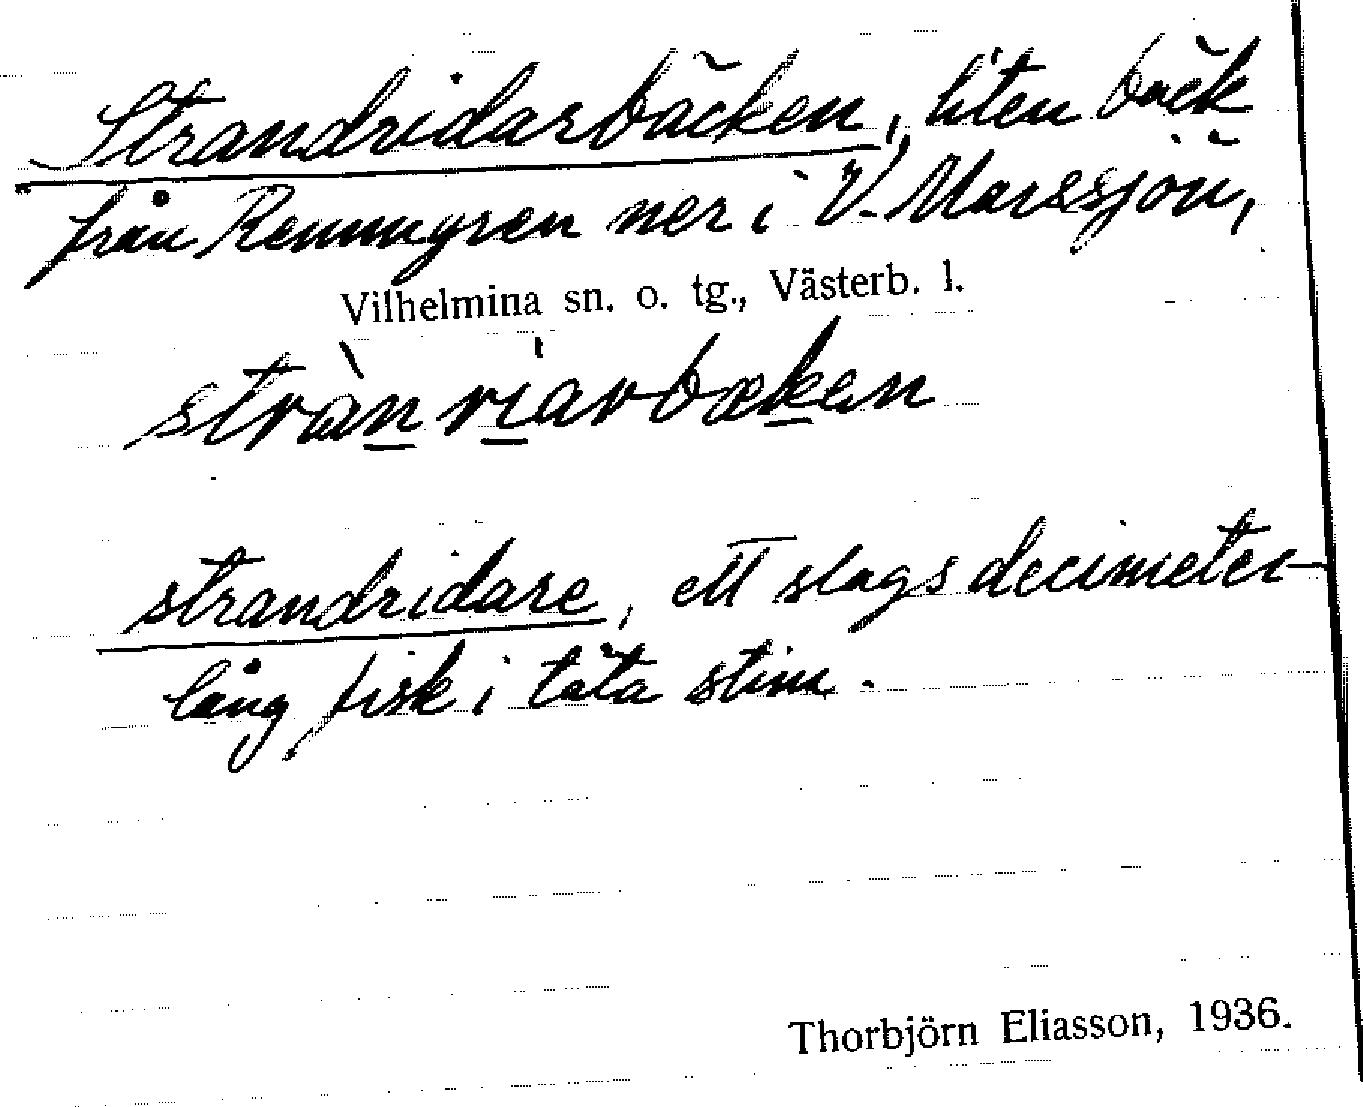 Strandridarbäcken, liten bäck
från Remmyren ner i V. Marssjön,
Vilhelmina sn. o. tg., Västerb. l.
strànriarbækən
strandridare, ett slags decimeter-
lång fisk i täta stim.
Thorbjörn Eliasson, 1936.